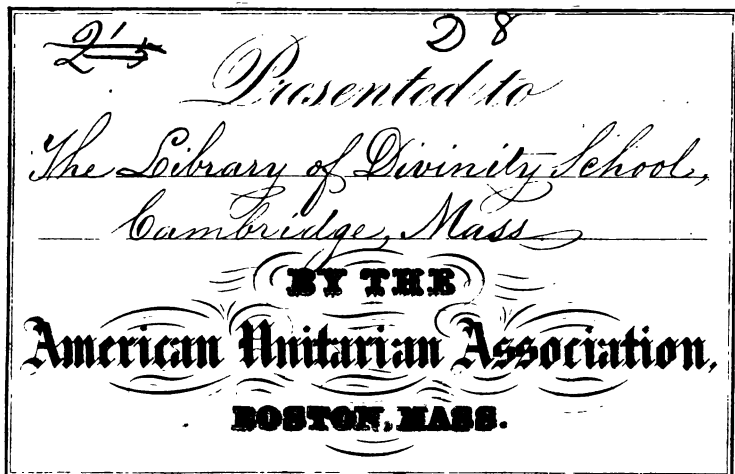 D 8
Presented to
The Library of Divinity School,
Cambridge, Mass
BY THE
American Unitarian Association,
BOSTON, MASS.